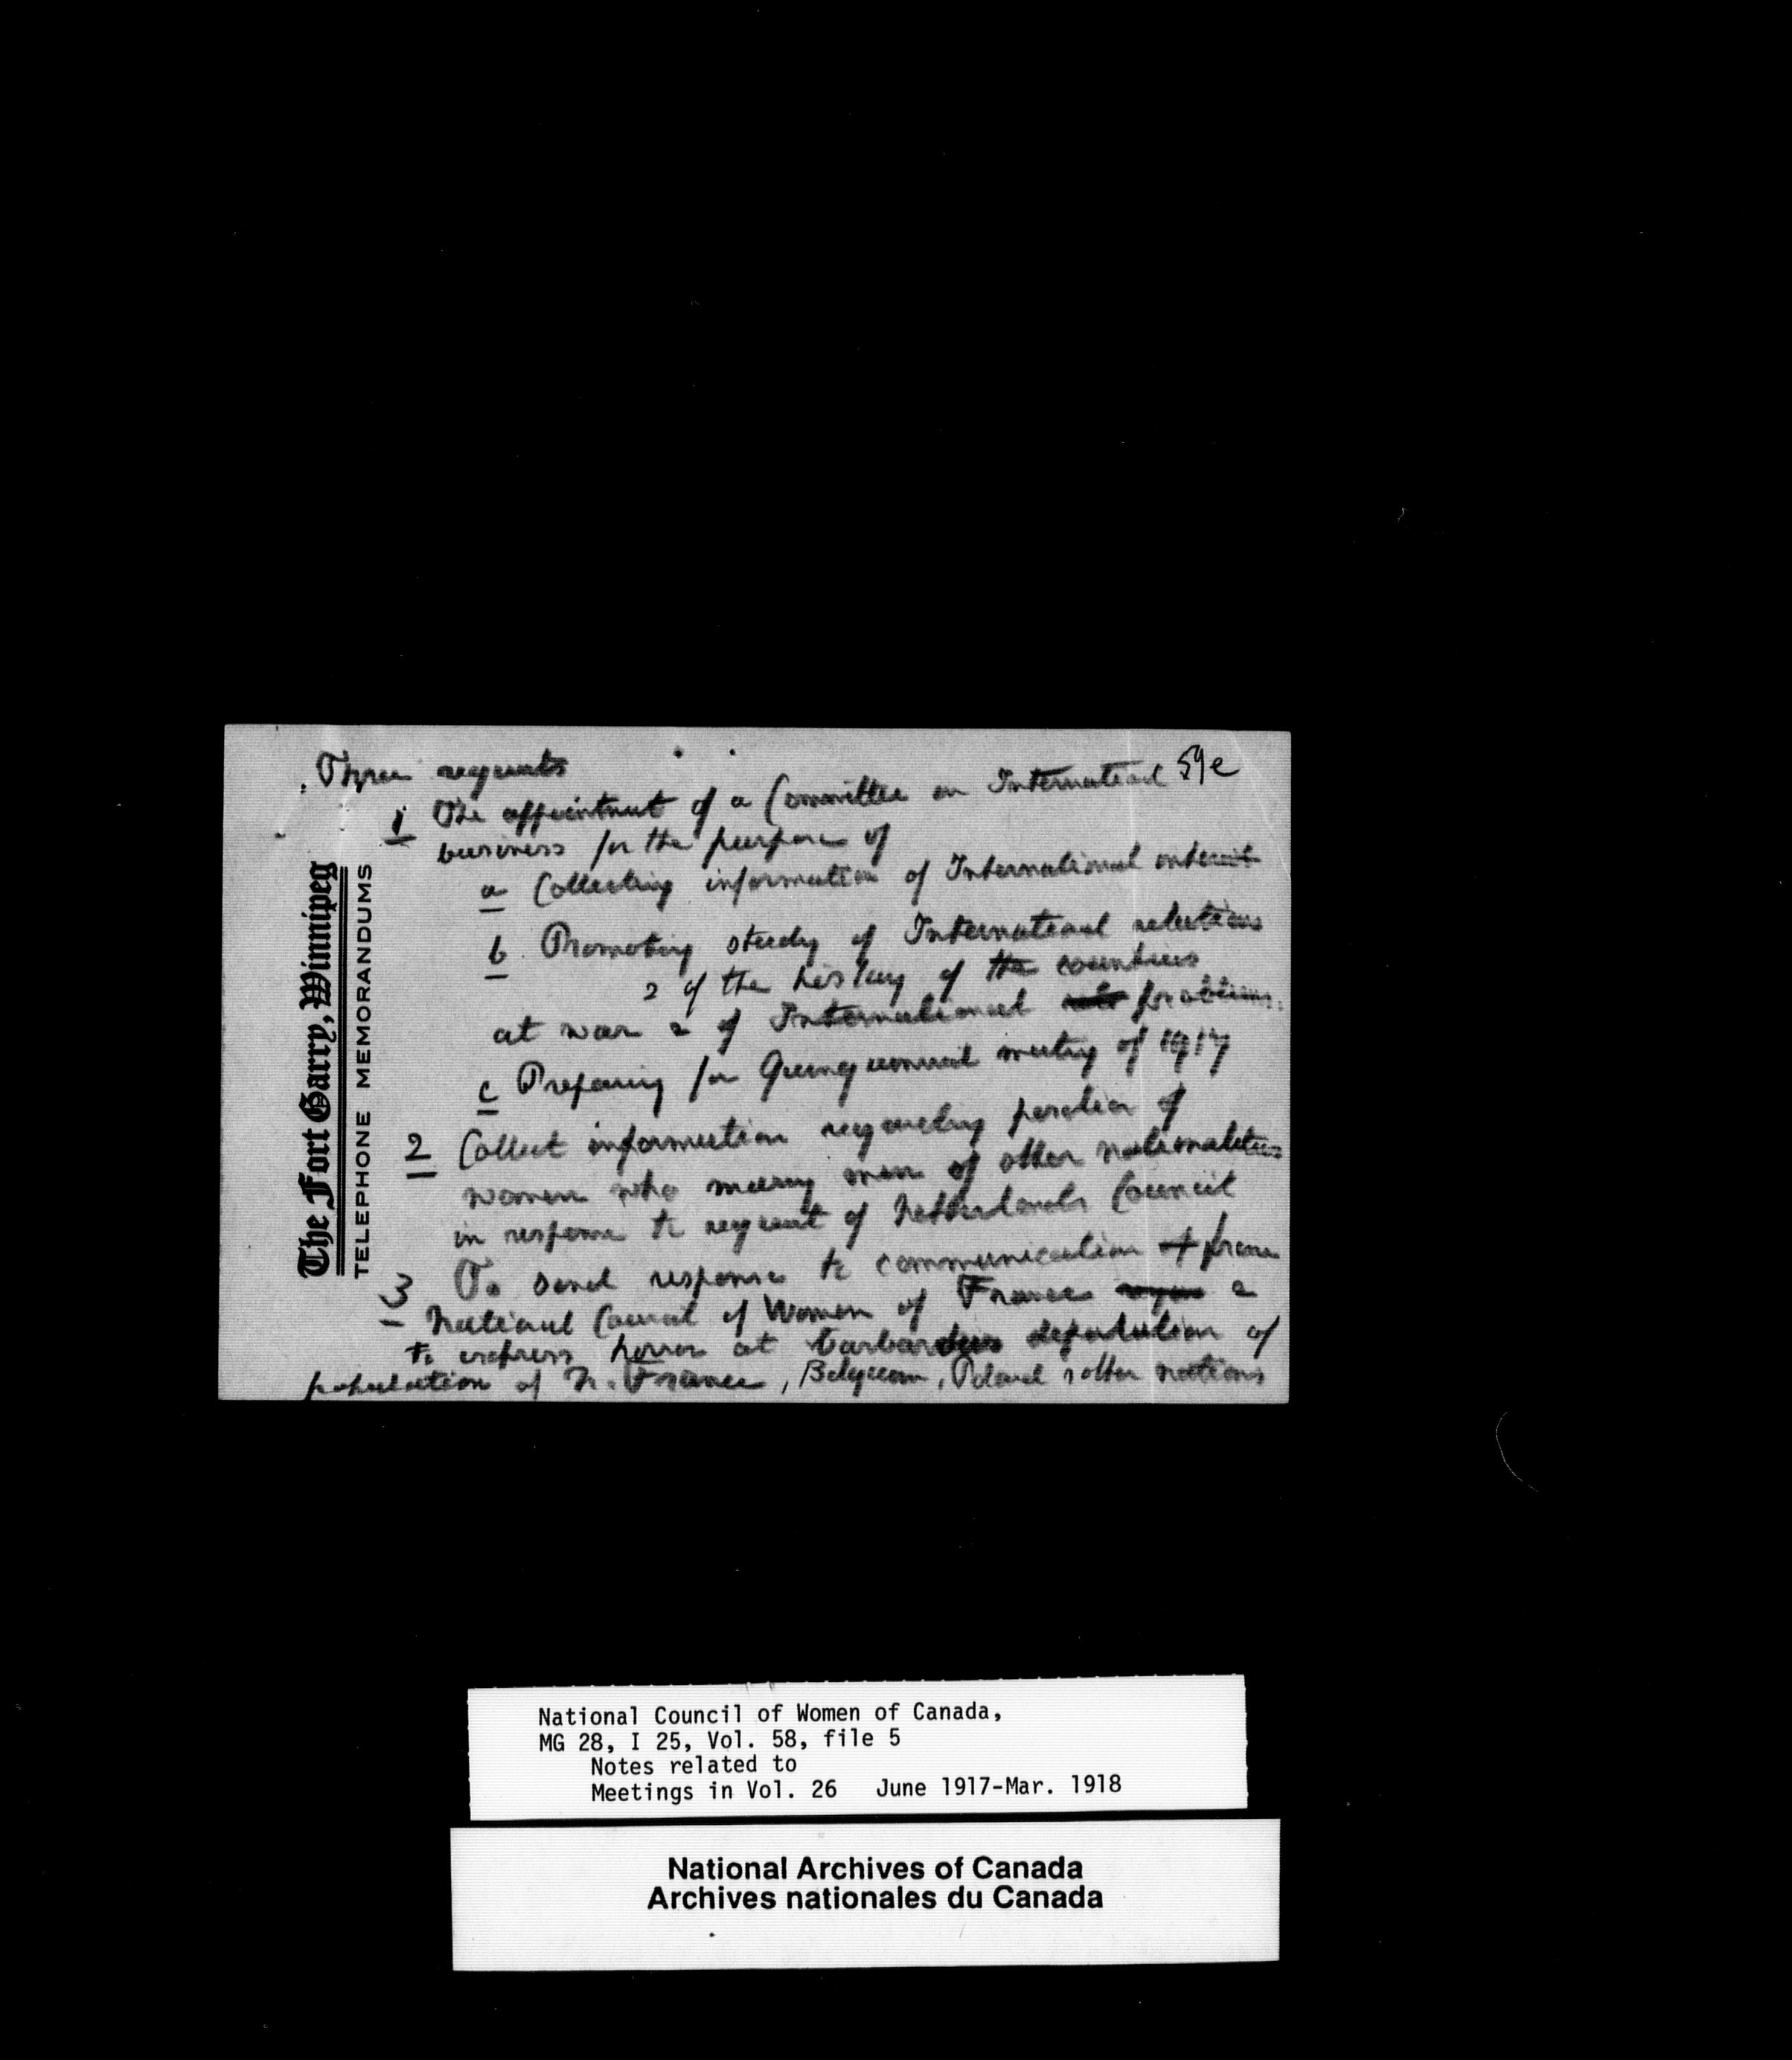 59e
Three requests
1 The appointment of a Committee on International
business for the purpose of
a Collecting information of International interest
b Promoting study of International relations
& of the history of the countries
at war & of International problems.
c Preparing for Quinquennial meeting of 1917
2 Collect information regarding position of
women who marry men of other nationalities
in response to request of Netherlands Council
3 To send response to communication of from
National Council of Women of France &
to express horror at barbarous deportation of
population of N. France, Belgium, Poland & other nations
The Fort Garry, Winnipeg
TELEPHONE MEMORANDUMS
National Council of Women of Canada,
MG 28, I 25, Vol. 58, file 5
Notes related to
Meetings in Vol. 26 June 1917-Mar. 1918
National Archives of Canada
Archives nationales du Canada